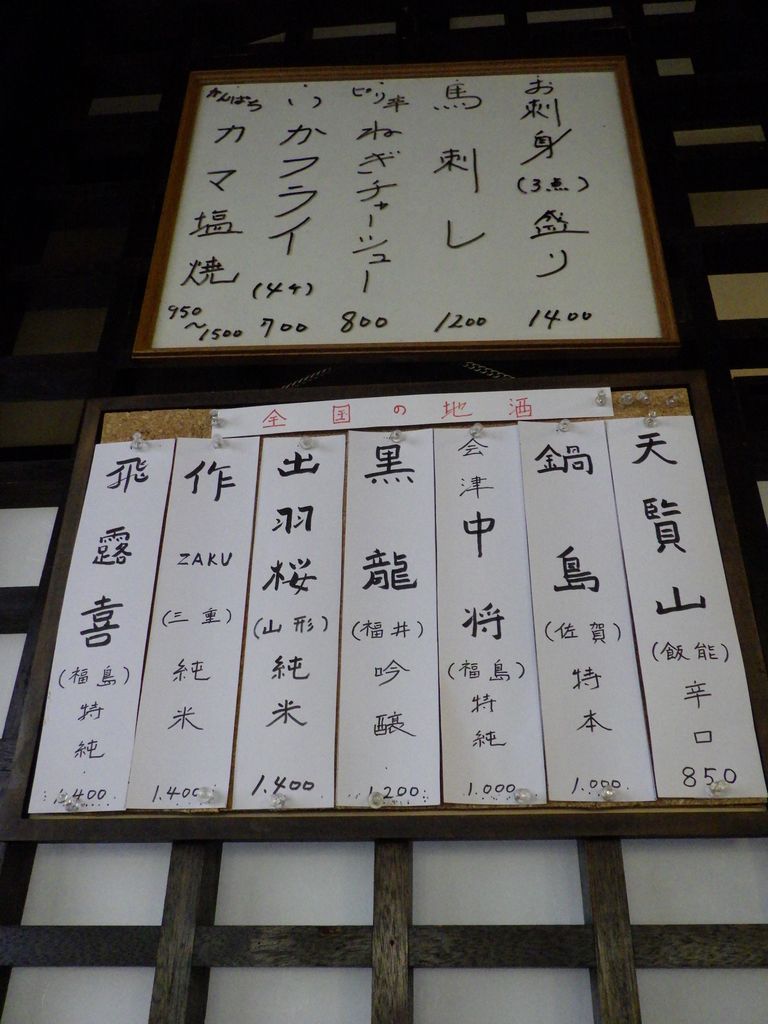 お刺身(3点)盛り 1400
馬刺し 1200
ピリ辛ねぎチャーシュー 800
いかフライ(4ケ) 700
かんぱちカマ塩焼 950〜1500
全国の地酒
天覧山(飯能)辛口 850
鍋島(佐賀)特本 1.000
会津中将(福島)特純 1.000
黒龍(福井)吟醸 1.200
出羽桜(山形)純米 1.400
作 ZAKU(三重)純米 1.400
飛露喜(福島)特純 1.400